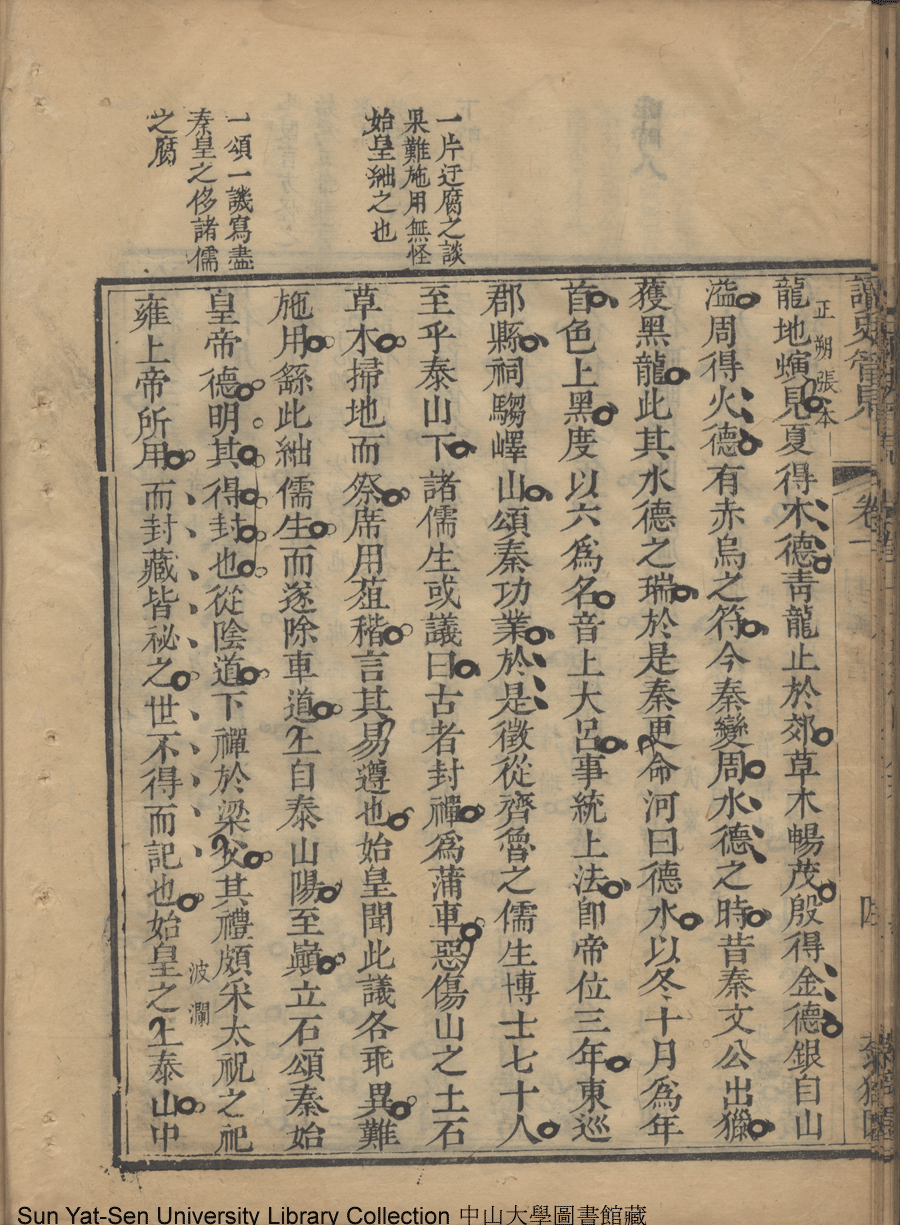 一片迂腐之談
果難施用無怪
始皇絀之也
一頌一譏寫盡
秦皇之侈諸儒
之腐
讀史管見
卷一
正朔張本
龍地螾見夏得木德青龍止於郊草木暢茂殷得金德銀自山
溢周得火德有赤烏之符今秦變周水德之時昔秦文公出獵
獲黑龍此其水德之瑞於是秦更命河曰德水以冬十月為年
首色上黑度以六為名音上大呂事統上法卽帝位三年東巡
郡縣祠騶嶧山頌秦功業於是徵從齊魯之儒生博士七十人
至乎泰山下諸儒生或議曰古者封禪為蒲車惡傷山之土石
草木掃地而祭席用葅稭言其易遵也始皇聞此議各乖異難
施用繇此絀儒生而遂除車道上自泰山陽至巔立石頌秦始
皇帝德明其得封也從陰道下禪於梁父其禮頗采太祝之祀
波瀾
雍上帝所用而封藏皆祕之世不得而記也始皇之上泰山中
Sun Yat-Sen University Library Collection 中山大學圖書館藏